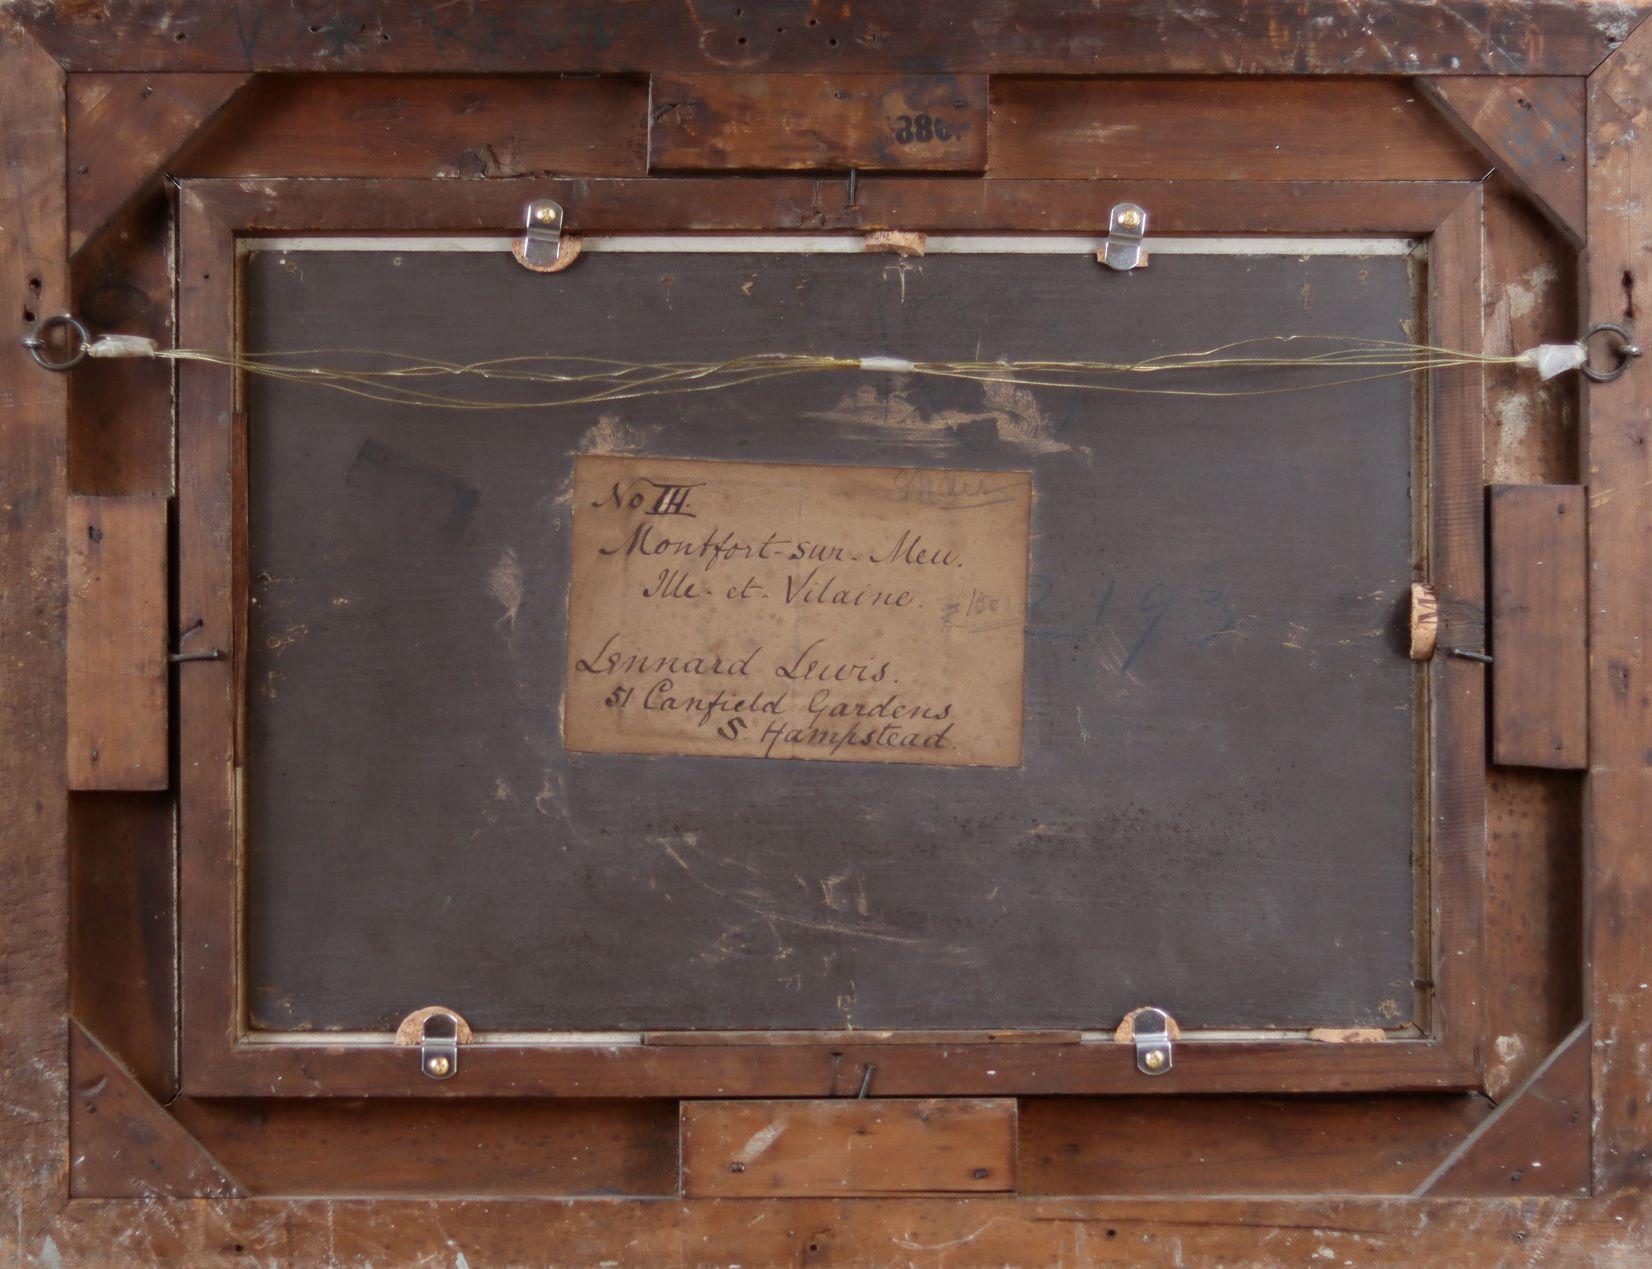 KEVIN
886.
No III.
Montfort-sur-Meu.
Ille-et-Vilaine.
2193
Lennard Lewis.
51 Canfield Gardens
S. Hampstead.